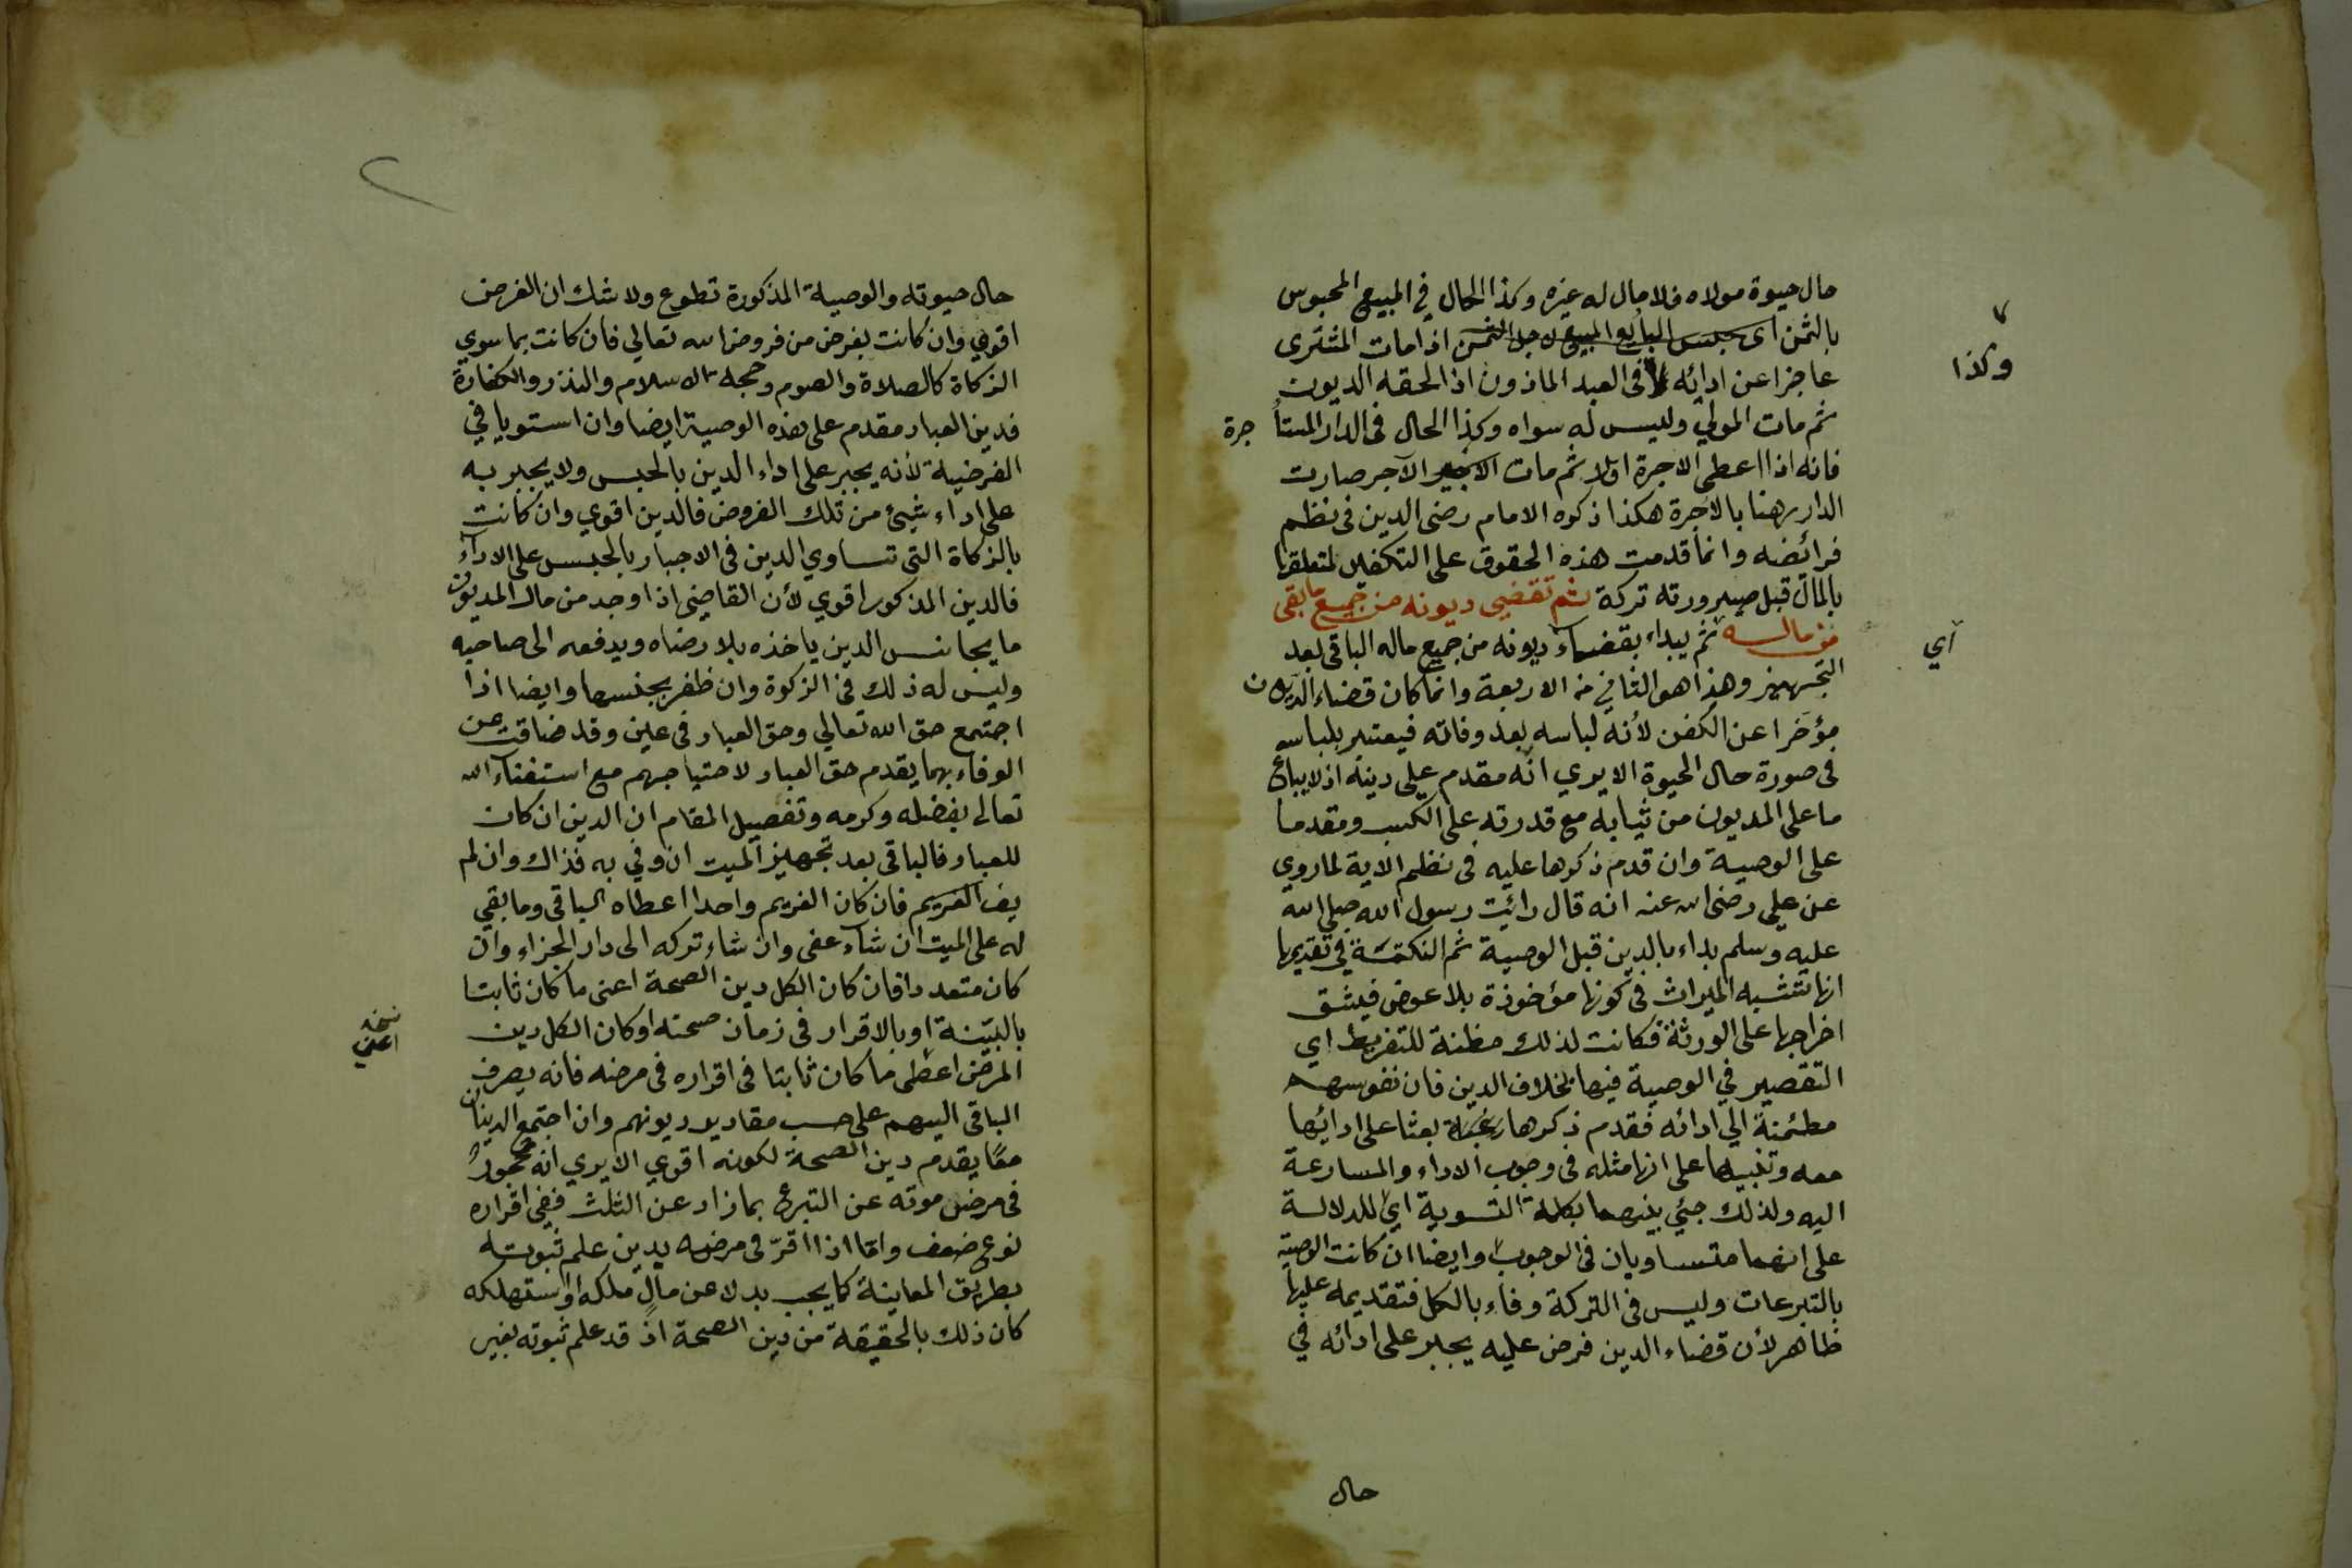 حال حيوة مولاه فلا مال له غيره وكذا الحال في المبيع المحبوس
بالثمن اى حبس البائع المبيع لاجل الثمن اذا مات المشترى
وكذا
عاجزا عن ادائه فى العبد الماذون اذا لحقه الديون
ثم مات المولي وليس له سواه وكذا الحال فى الدار المستأ
جرة
فانه اذا اعطى الاجرة اولا ثم مات الآجر صارت
الدار رهنا بالاجرة هكذا ذكره الامام رضى الدين فى نظم
فرائضه وانما قدمت هذه الحقوق على التكفين لتعلقها
بالمال قبل صيرورته تركة ثم تقضي ديونه من جميع ما بقى
من ماله ثم يبداء بقضاء ديونه من جميع ماله الباقى بعد
أي
التجهيز وهذا هو الثاني من الاربعة وانما كان قضاء الديون
مؤخرا عن الكفن لأنه لباسه بعد وفاته فيعتبر بلباسه
فى صورة حال الحيوة الا يري انه مقدم على دينه اذ لا يباع
ما على المديون من ثيابه مع قدرته على الكسب ومقدما
على الوصية وان قدم ذكرها عليه فى نظم الاية لما روي
عن علي رضى الله عنه انه قال رائيت رسول الله صلى الله
عليه وسلم بداء بالدين قبل الوصية ثم النكتة في تقديمها
انها تشبه الميراث في كونها مؤخوذة بلا عوض فيشق
اخراجها على الورثة فكانت لذلك مظنة للتفريط اي
التقصير في الوصية فيها بخلاف الدين فان نفوسهم
مطئمنة الي ادائه فقدم ذكرها بعثا على ادائها
معه وتنبيها على انها مثله فى وجوب الاداء والمسارعة
اليه ولذلك جئي بينهما بكلمة التسوية اي للدلالة
على انهما متساويان فى الوجوب وايضا ان كانت الوصية
بالتبرعات وليس فى التركة وفاء بالكل فتقديمه عليها
ظاهر لأن قضاء الدين فرض عليه يجبر على ادائه في
حال
حال حيوته والوصية المذكورة تطوع ولا شك ان الفرض
اقوي وان كانت بفرض من فروض الله تعالي فان كانت بما سوي
الزكاة كالصلاة والصوم وحجة الاسلام والنذر والكفارة
فدين العباد مقدم على هذه الوصية ايضا وان استويا في
الفرضية لأنه يجبر على اداء الدين بالحبس ولا يجبر به
على اداء شيئ من تلك الفروض فالدين اقوي وان كانت
بالزكاة التى تساوي الدين فى الاجبار بالحبس على الاداء
فالدين المذكور اقوي لأن القاضي اذا وجد من مال المديون
ما يجانس الدين ياخذه بلا رضاه ويدفعه الى صاحبه
وليس له ذلك فى الزكوة وان ظفر بجنسها وايضا اذا
اجتمع حق الله تعالي وحق العباد فى عين وقد ضاقت عن
الوفاء بهما يقدم حق العباد لاحتياجهم مع استغناء الله
تعالى بفضله وكرمه وتفصيل المقام ان الدين ان كان
للعباد فالباقى بعد تجهيز الميت ان وفي به فذاك وان لم
يف الغريم فان كان الغريم واحدا اعطاه الباقى وما بقي
له على الميت ان شاء عفى وان شاء تركه الى دار الجزاء وان
كان متعددا فان كان الكل دين الصحة اعنى ما كان ثابتا
بالبينة او بالاقرار فى زمان صحته او كان الكل دين
نسخه
اعني
المرض اعطى ما كان ثابتا فى اقراره فى مرضه فانه يصرف
الباقى اليهم على حسب مقادير ديونهم وان اجتمع الدينان
معًا يقدم دين الصحة لكونه اقوي الا يري انه محجور
فى مرض موته عن التبرع بما زاد عن الثلث ففى اقراره
نوع ضعف واما اذا اقرّ فى مرضه بدين علم ثبوته
بطريق المعاينة كما يجب بدلا عن مالٍ ملكه او استهلكه
كان ذلك بالحقيقة من دين الصحة اذ قد علم ثبوته بغير